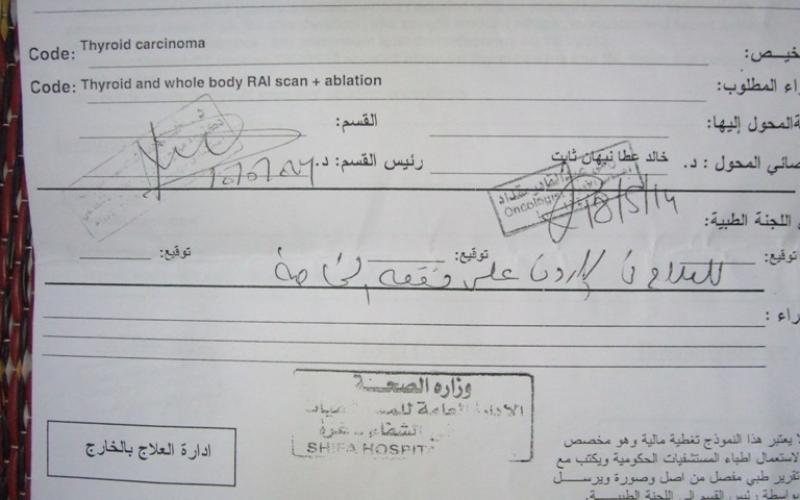 Code: Thyroid carcinoma
Code: Thyroid and whole body RAI scan + ablation راء المطلوب:
المحول إليها: القسم:
صائي المحول : د. خالد عطا نبهان ثابت رئيس القسم: د.
Oncologist
18/5/14
اللجنة الطبية:
توقيع: توقيع: توقيع:
للعلاج في الأردن على نفقته الخاصة
راء :
وزارة الصحة
الشفاء
SHIFA HOSPIT
ادارة العلاج بالخارج
لا يعتبر هذا النموذج تغطية مالية وهو مخصص
لاستعمال اطباء المستشفيات الحكومية ويكتب مع
تقرير طبي مفصل من اصل وصورة ويرسل
رئيس القسم الى اللجنة الطبية.